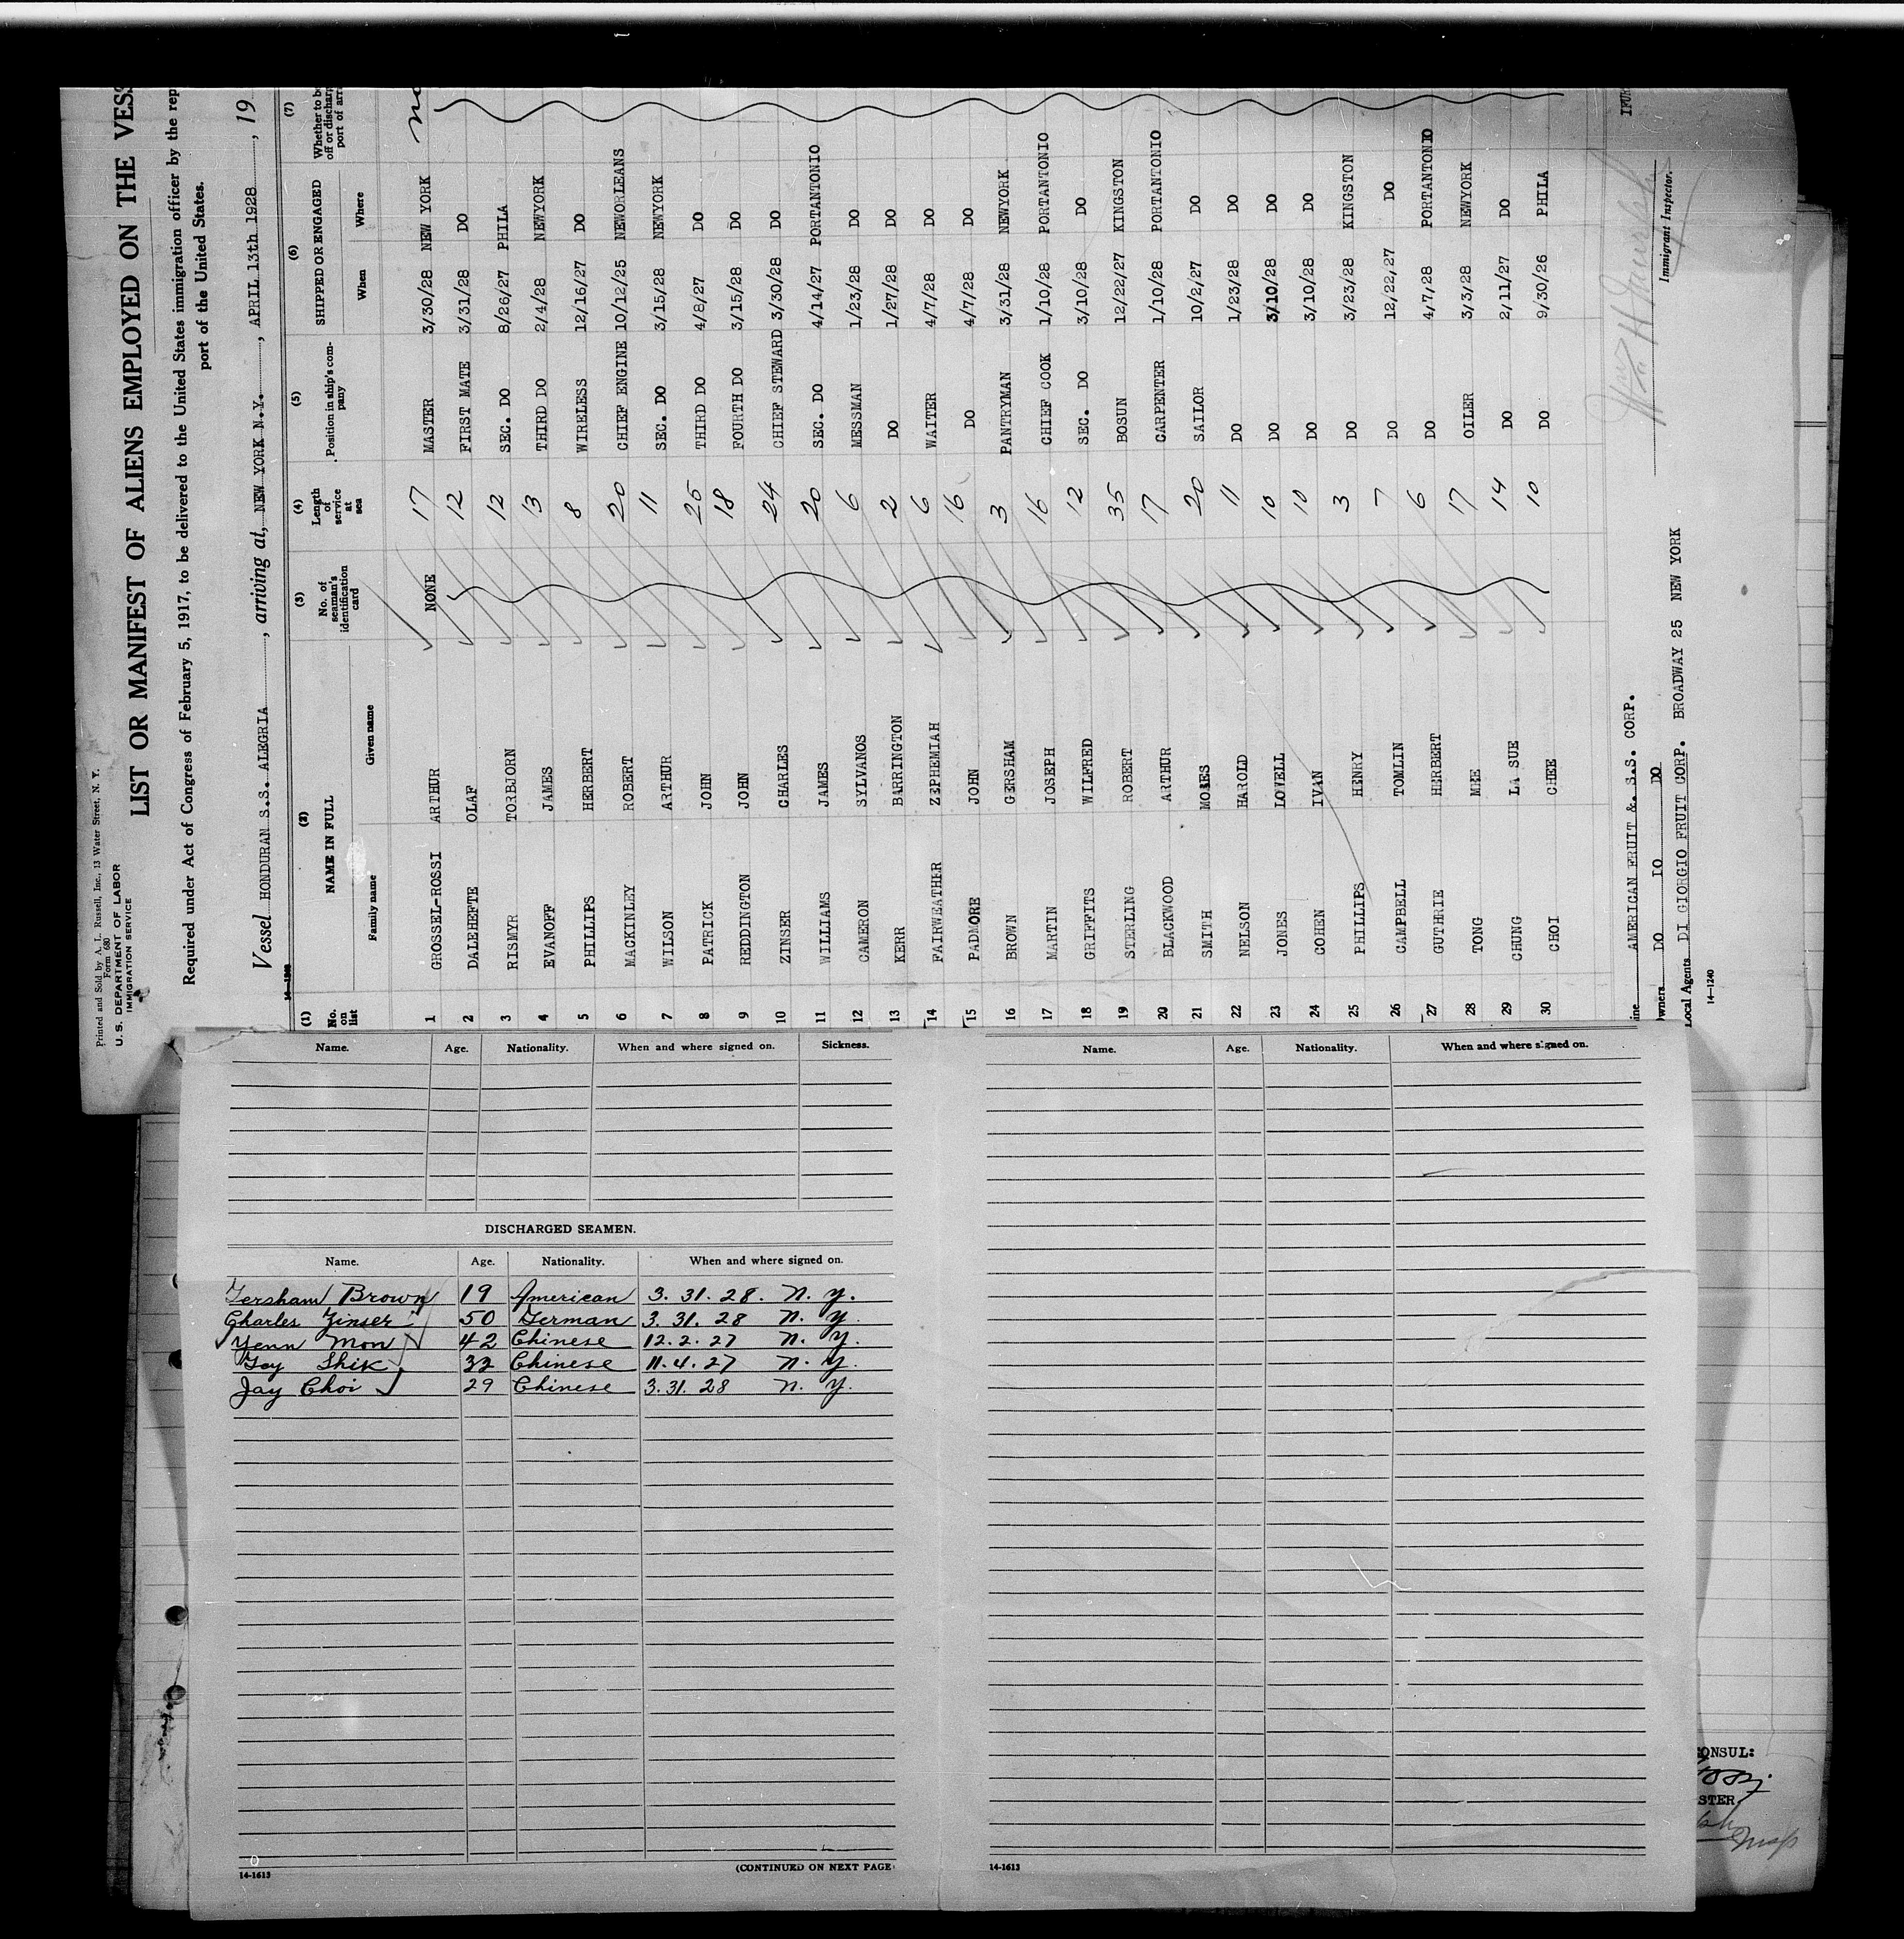 Printed and Sold by A. L. Russell, Inc., 13 Water Street, N. Y.
Form 680
U. S. DEPARTMENT OF LABOR
IMMIGRATION SERVICE
LIST OR MANIFEST OF ALIENS EMPLOYED ON THE VESS
Required under Act of Congress of February 5, 1917, to be delivered to the United States immigration officer by the rep
port of the United States.
Vessel HONDURAN S.S. ALEGRIA, arriving at, NEW YORK N.Y., APRIL 13th 1928, 19
(1) (2) (3) (4) (5) (6) (7)
No. on list NAME IN FULL No. of seaman's identification card Length of service at sea Position in ship's company SHIPPED OR ENGAGED Whether to be off or discharg port of arr
Family name Given name When Where
1 GROSSEL-ROSSI ARTHUR NONE 17 MASTER 3/30/28 NEW YORK
2 DALEHEFTE OLAF 12 FIRST MATE 3/31/28 DO
3 RISMYR TORBJORN 12 SEC. DO 8/26/27 PHILA
4 EVANOFF JAMES 13 THIRD DO 2/4/28 NEWYORK
5 PHILLIPS HERBERT 8 WIRELESS 12/16/27 DO
6 MACKINLEY ROBERT 20 CHIEF ENGINE 10/12/25 NEWORLEANS
7 WILSON ARTHUR 11 SEC. DO 3/15/28 NEWYORK
8 PATRICK JOHN 25 THIRD DO 4/8/27 DO
9 REDDINGTON JOHN 18 FOURTH DO 3/15/28 DO
10 ZINSER CHARLES 24 CHIEF STEWARD 3/30/28 DO
11 WILLIAMS JAMES 20 SEC. DO 4/14/27 PORTANTONIO
12 CAMERON SYLVANOS 6 MESSMAN 1/23/28 DO
13 KERR BARRINGTON 2 DO 1/27/28 DO
14 FAIRWEATHER ZEPHEMIAH 6 WAITER 4/7/28 DO
15 PADMORE JOHN 16 DO 4/7/28 DO
16 BROWN GERSHAM 3 PANTRYMAN 3/31/28 NEWYORK
17 MARTIN JOSEPH 16 CHIEF COOK 1/10/28 PORTANTONIO
18 GRIFFITS WILFRED 12 SEC. DO 3/10/28 DO
19 STERLING ROBERT 35 BOSUN 12/22/27 KINGSTON
20 BLACKWOOD ARTHUR 17 CARPENTER 1/10/28 PORTANTONIO
21 SMITH MOAES 20 SAILOR 10/2/27 DO
22 NELSON HAROLD 11 DO 1/23/28 DO
23 JONES LOWELL 10 DO 3/10/28 DO
24 COHEN IVAN 10 DO 3/10/28 DO
25 PHILLIPS HENRY 3 DO 3/23/28 KINGSTON
26 CAMPBELL TOMLIN 7 DO 12/22/27 DO
27 GUTHRIE HERBERT 6 DO 4/7/28 PORTANTONIO
28 TONG MEE 17 OILER 3/3/28 NEWYORK
29 CHUNG LA SUE 14 DO 2/11/27 DO
30 CHOI CHEE 10 DO 9/30/26 PHILA
ine AMERICAN FRUIT &. S.S. CORP.
Owners DO DO DO
Immigrant Inspector.
Local Agents DI GIORGIO FRUIT CORP. BROADWAY 25 NEW YORK
14—1240
Name. Age. Nationality. When and where signed on. Sickness.
DISCHARGED SEAMEN.
Name. Age. Nationality. When and where signed on.
Gersham Brown 19 American 3. 31. 28. N. Y.
Charles Zinser 50 German 3. 31. 28 N. Y.
Yenn Mon 42 Chinese 12. 2. 27 N. Y.
Goy Shik 32 Chinese 11. 4. 27 N. Y.
Jay Choi 29 Chinese 3. 31. 28 N. Y.
14-1613
(CONTINUED ON NEXT PAGE
Name. Age. Nationality. When and where signed on.
14-1613
ONSUL:
STER